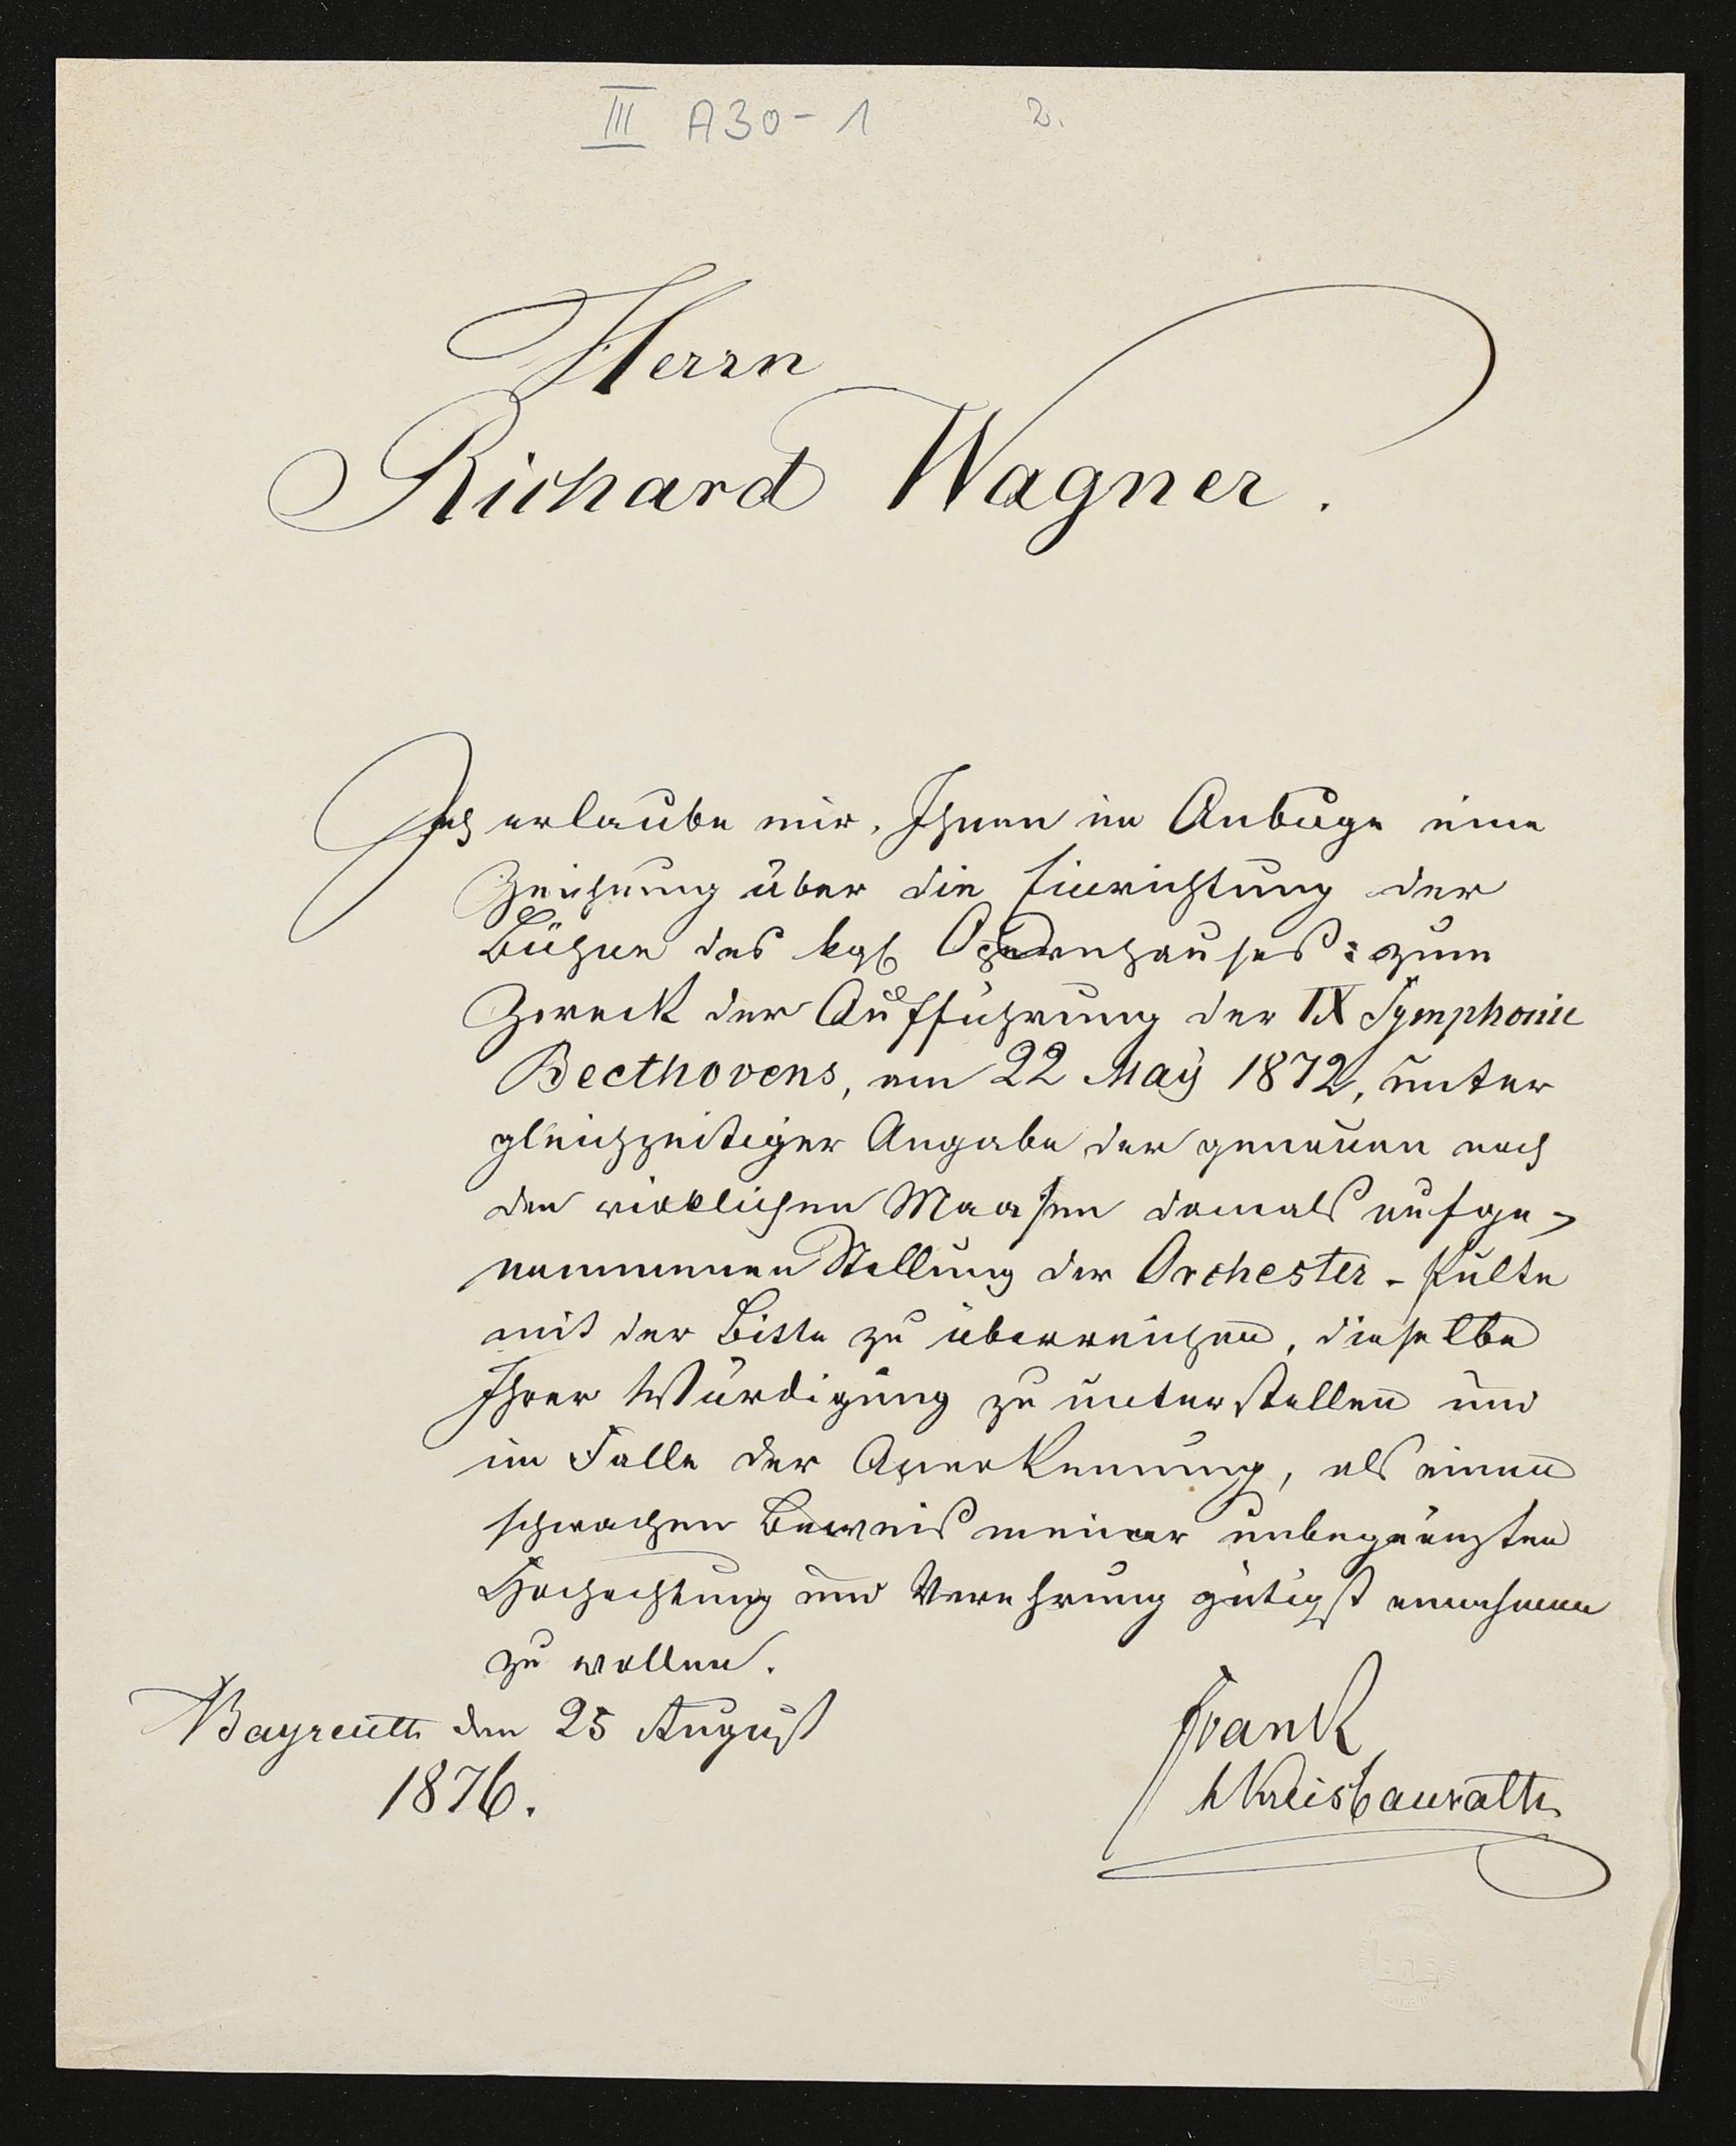 III A30-1 2.
Herrn
Richard Wagner.
Ich erlaube mir, Ihnen im Anbuge eine
Zeichnung über die Einrichtung der
Bühne des kgl Opernhauses: zum
Zweck der Aufführung der IX Symphonie
Beethovens, am 22 May 1872, unter
gleichzeitiger Angabe der genauen nach
den wirklichen Maasen damals aufge-
nommenen Stellung der Orchester-Pulte
mit der Bitte zu überreichen, dieselbe
Ihrer Würdigung zu unterstellen und
im Falle der Anerkennung, als einen
schwachen Beweis meiner unbegränzten
Hochachtung und Verehrung gütigst annehmen
zu wollen.
Bayreuth den 25 August
1876.
Frank
Kreisbaurath